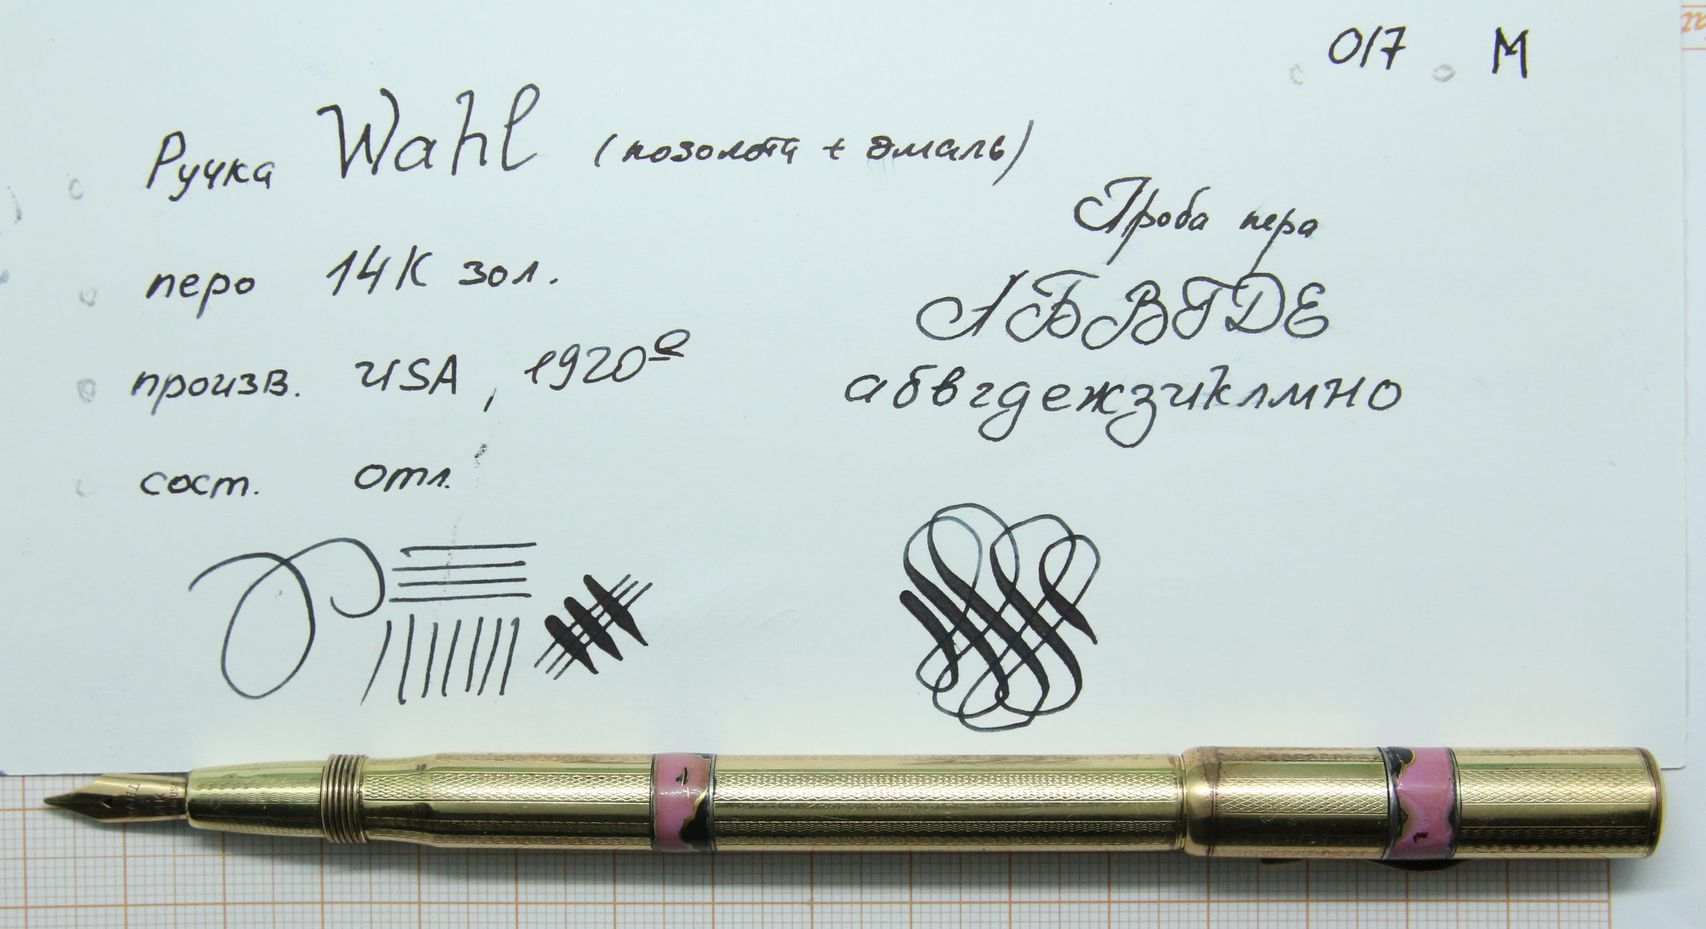 017 М
Ручка Wahl (позолота + эмаль)
перо 14К зол.
произв. USA, 1920е
сост. отл.
Проба пера
АБВГДЕ
абвгдежзиклмно